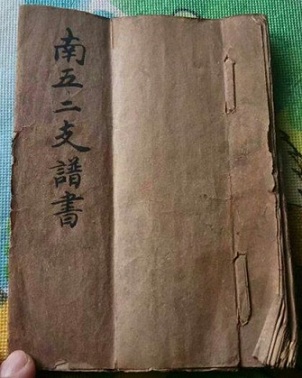 南五二支譜書